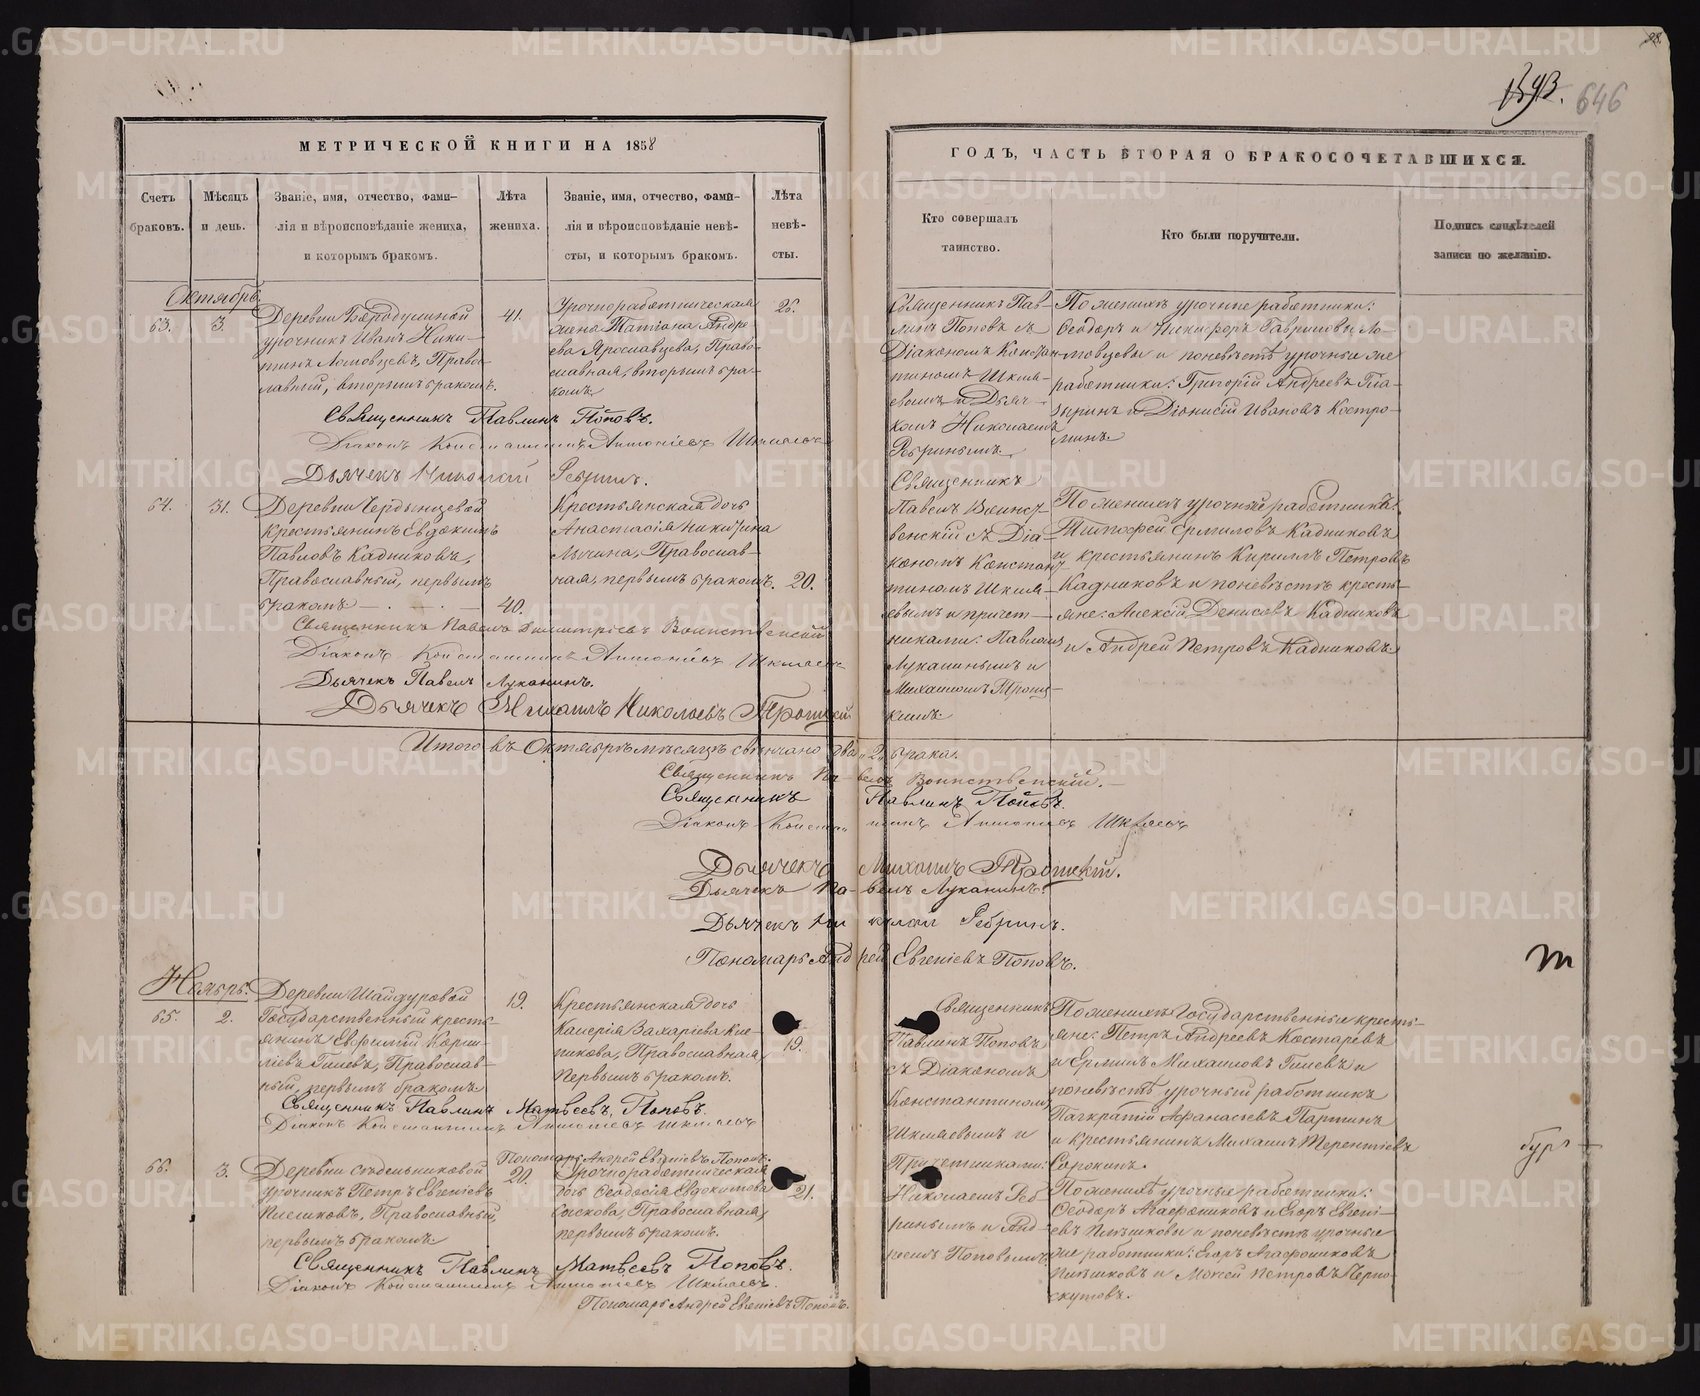 98.
1593. 646
МЕТРИЧЕСКОЙ КНИГИ НА 1858
ГОДЪ, ЧАСТЬ ВТОРАЯ О БРАКОСОЧЕТАВШИХСЯ.
Счетъ браковъ.
Мѣсяцъ и день.
Званіе, имя, отчество, фами-
лія и вѣроисповѣданіе жениха,
и которымъ бракомъ.
Лѣта жениха.
Званіе, имя, отчество, фами-
лія и вѣроисповѣданіе невѣ-
сты, и которымъ бракомъ.
Лѣта невѣ-
сты.
Кто совершалъ
таинство.
Кто были поручители.
Подпись свидѣтелей
записи по желанію.
Октябрь
63.
3.
Деревни
урочникъ Иванъ Ники-
тинъ Ломовцевъ, Право-
лавный, вторымъ бракомъ.
41.
Урочноработническая
жена Татіана Андре
ева Ярославцева, Право-
славная, вторымъ бра-
комъ
26.
Священникъ Пав-
линъ Поповъ съ
Діакономъ Констан
тиномъ Шкля-
евымъ и Дьяч-
комъ Николаемъ
Ребринымъ.
По женихѣ урочные работники:
Ѳеодоръ и Никифоръ Гавриловы Ло-
мовцевы и по невѣстѣ урочные же
работники: Григорій Андреевъ Гла-
зыринъ и Діонисій Ивановъ Костро-
минъ
Священникъ Павлинъ Поповъ.
Діаконъ Константинъ Антоніевъ Шкляевъ
Дьячекъ Николай Ребринъ.
64.
31.
Деревни Чердынцевой
крестьянинъ Евдокимъ
Павловъ Кадниковъ,
Православный, первымъ
бракомъ
40.
Крестьянская дочь
Анастасія Никитина
Лычина, Православ-
ная, первымъ бракомъ.
20.
Священникъ
Павелъ Воинст-
венскій съ Діа-
кономъ Констан
тиномъ Шкля-
евымъ и причет-
никами: Павломъ
Луканинымъ и
Михаиломъ Троиц-
кимъ.
По женихѣ урочный работникъ
Тимофей Ермиловъ Кадниковъ
и крестьянинъ Кириллъ Петровъ
Кадниковъ и по невѣстѣ кресть-
яне: Алексій Денисовъ Кадниковъ
и Андрей Петровъ Кадниковъ
Священникъ Павелъ Димитріевъ Воинственскій
Діаконъ Константинъ Антоніевъ Шкляевъ
Дьячекъ Павелъ Луканинъ.
Дьячекъ Михаилъ Николаевъ Троицкій
Итого въ Октябрѣ мѣсяцѣ свѣнчано два 2. брака.
Священникъ Павелъ Воинственскій.
Священникъ Павлинъ Поповъ.
Діаконъ Константинъ Антоніевъ Шкляевъ
Дьячекъ Михаилъ Троицкій.
Дьячекъ Павелъ Луканинъ.
Дьячекъ Николай Ребринъ.
Пономарь Андрей Евгеніевъ Поповъ.
Ноябрь.
65.
2.
Деревни Шайдуровой
Государственный кресть-
янинъ Евфимій Корни-
ліевъ Гилевъ, Православ-
ный, первымъ бракомъ
19.
Крестьянская дочь
Калерія Захаріева Кле-
пикова, Православная,
первымъ бракомъ.
19.
Священникъ
Павлинъ Поповъ
съ Діакономъ
Константиномъ
Шкляевымъ и
Причетниками:
Николаемъ Реб
ринымъ и Анд-
реемъ Поповымъ
По женихѣ Государственные кресть-
яне: Петръ Андреевъ Костаревъ
и Ермилъ Михаиловъ Гилевъ и
по невѣстѣ урочный работникъ
Панкратій Афанасьевъ Паршинъ
и крестьянинъ Михаилъ Терентіевъ
Сорокинъ.
Священникъ Павлинъ Матвѣевъ Поповъ.
Діаконъ Константинъ Антоніевъ Шкляевъ
Пономарь Андрей Евгеніевъ Поповъ.
66.
3.
Деревни Сѣдельниковой
урочникъ Петръ Евгеніевъ
Православный,
первымъ бракомъ
20.
Урочноработническая
дочь Ѳеодосія Евдокимова
Православная,
первымъ бракомъ.
21.
По женихѣ урочные работники:
Ѳеодоръ Агафониковъ и Егоръ Евгені-
евъ и по невѣстѣ урочные
же работники: Егоръ Агафониковъ
и Моисей Петровъ Черно-
скутовъ.
Священникъ Павлинъ Матвѣевъ Поповъ.
Діаконъ Константинъ Антоніевъ Шкляевъ.
Пономарь Андрей Евгеніевъ Поповъ.
METRIKI.GASO-URAL.RU